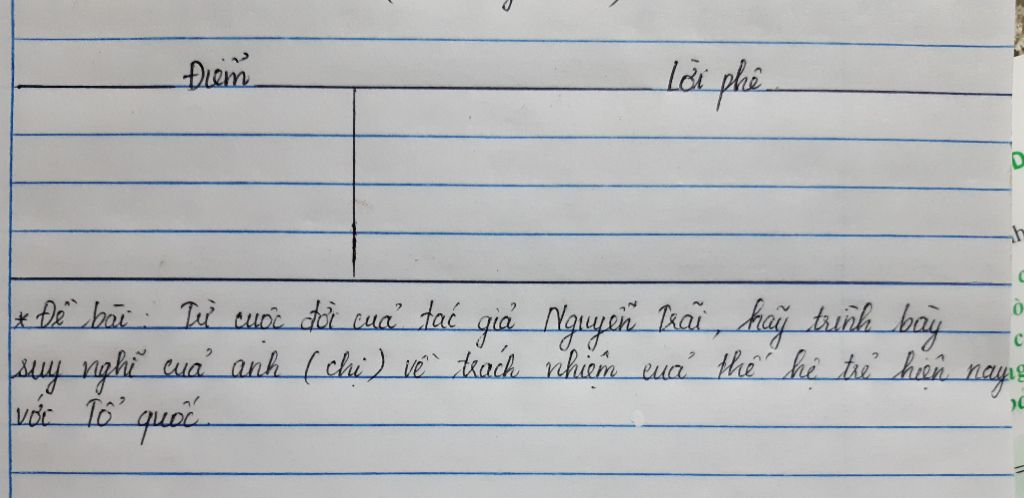 Điểm Lời phê
* Đề bài: Từ cuộc đời của tác giả Nguyễn Trãi, hãy trình bày
suy nghĩ của anh (chị) về trách nhiệm của thế hệ trẻ hiện nay
với Tổ quốc.